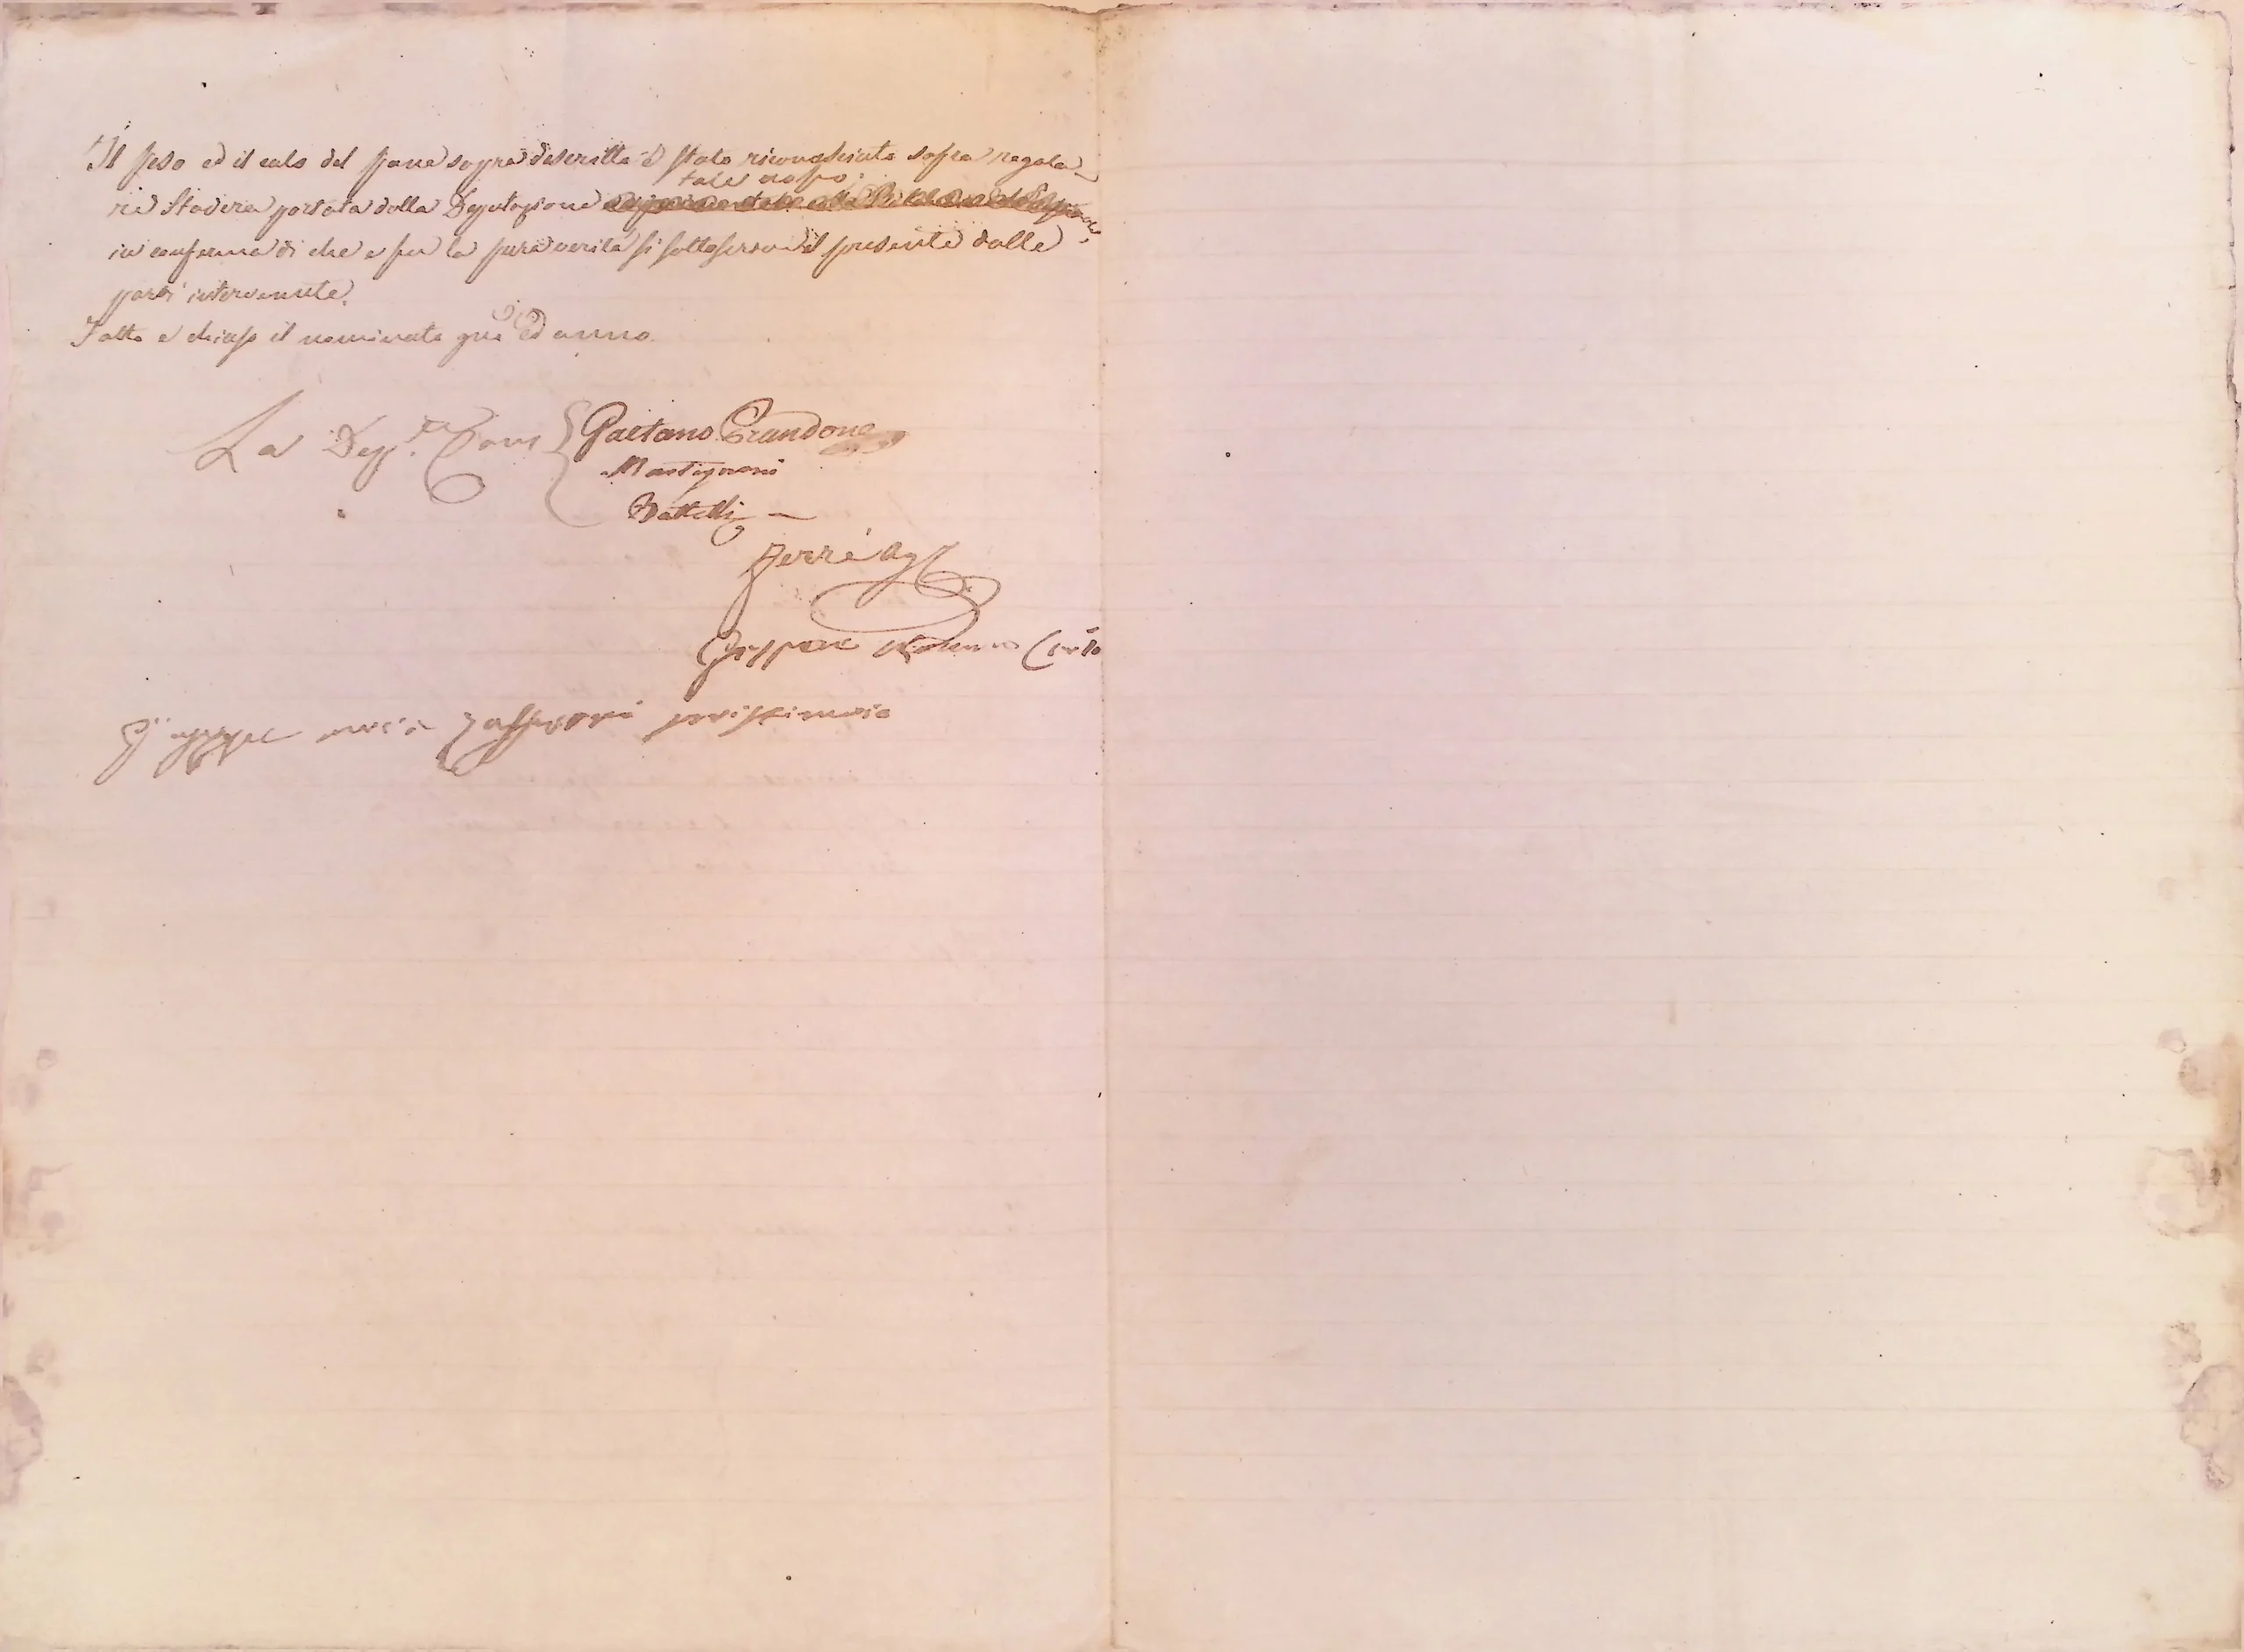 Il peso ed il calo del pane sopra descritto è stato riconosciuto sopra regola-
re Stadera portata dalla Deputazione
tale uopo.
in conferma di che e per la pura verità si sottoscrive il presente dalle
parti intervenute.
Fatto e chiuso il nominato gno ed anno.
La Dep.ne Com {Gaetano Grandone
Martignoni
Battelli
Ferrè Ag
Gaspare
Giuseppe maria prestinaio